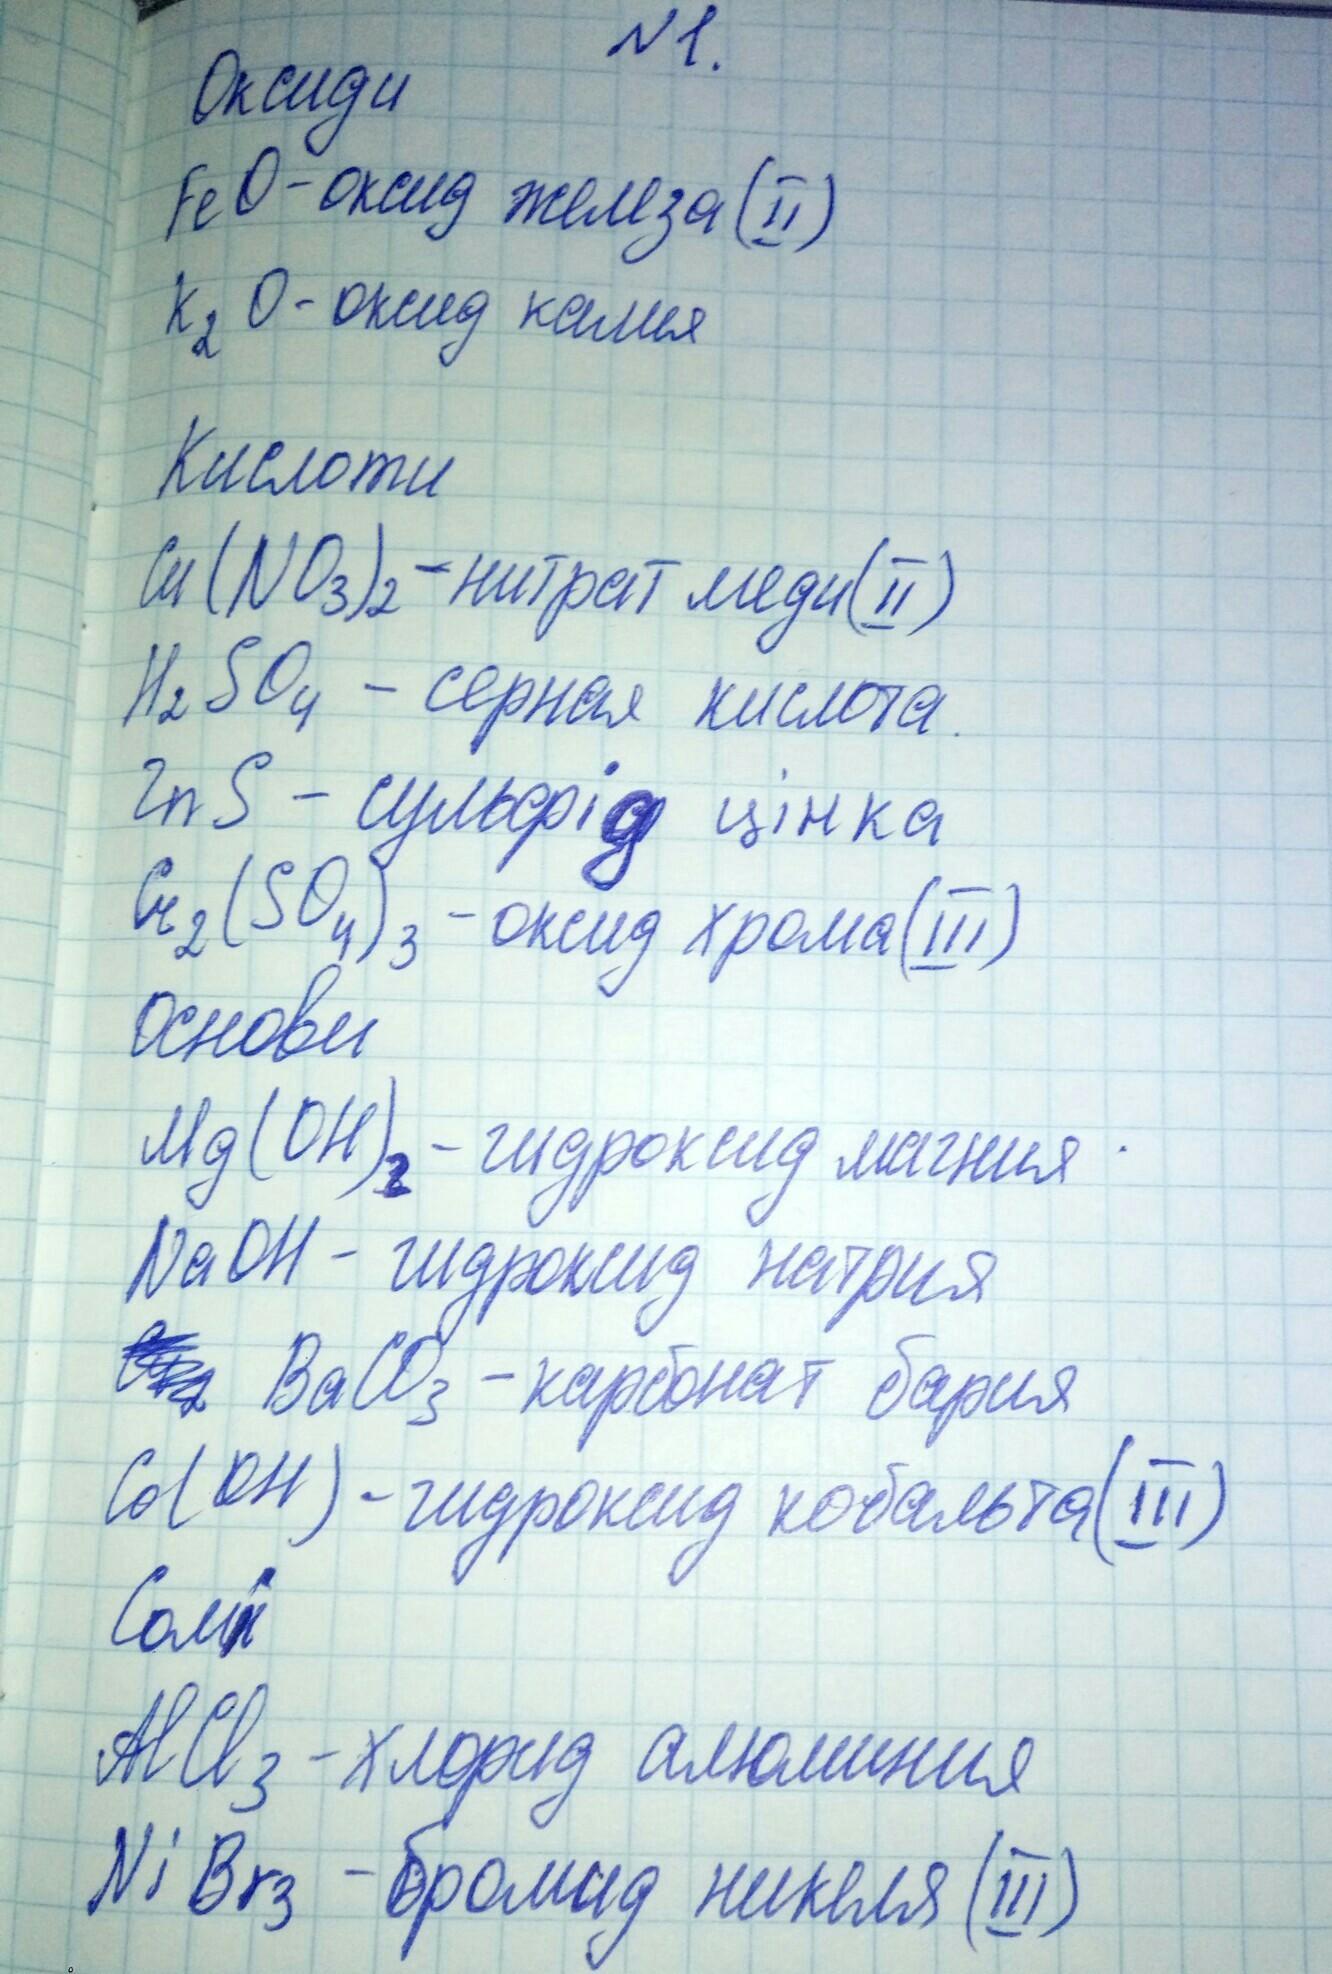 N1.
Оксиди
FeO - оксид железа (II)
K2O - оксид калия
Кислоти
Cu(NO3)2 - нитрат меди (II)
H2SO4 - серная кислота.
ZnS - сульфід цінка
Cr2(SO4)3 - оксид хрома (III)
Основи
Mg(OH)2 - гидроксид магния
NaOH - гидроксид натрия
BaCO3 - карбонат бария
Co(OH) - гидроксид кобальта (III)
Солі
AlCl3 - хлорид алюминия
NiBr3 - бромид никеля (III)